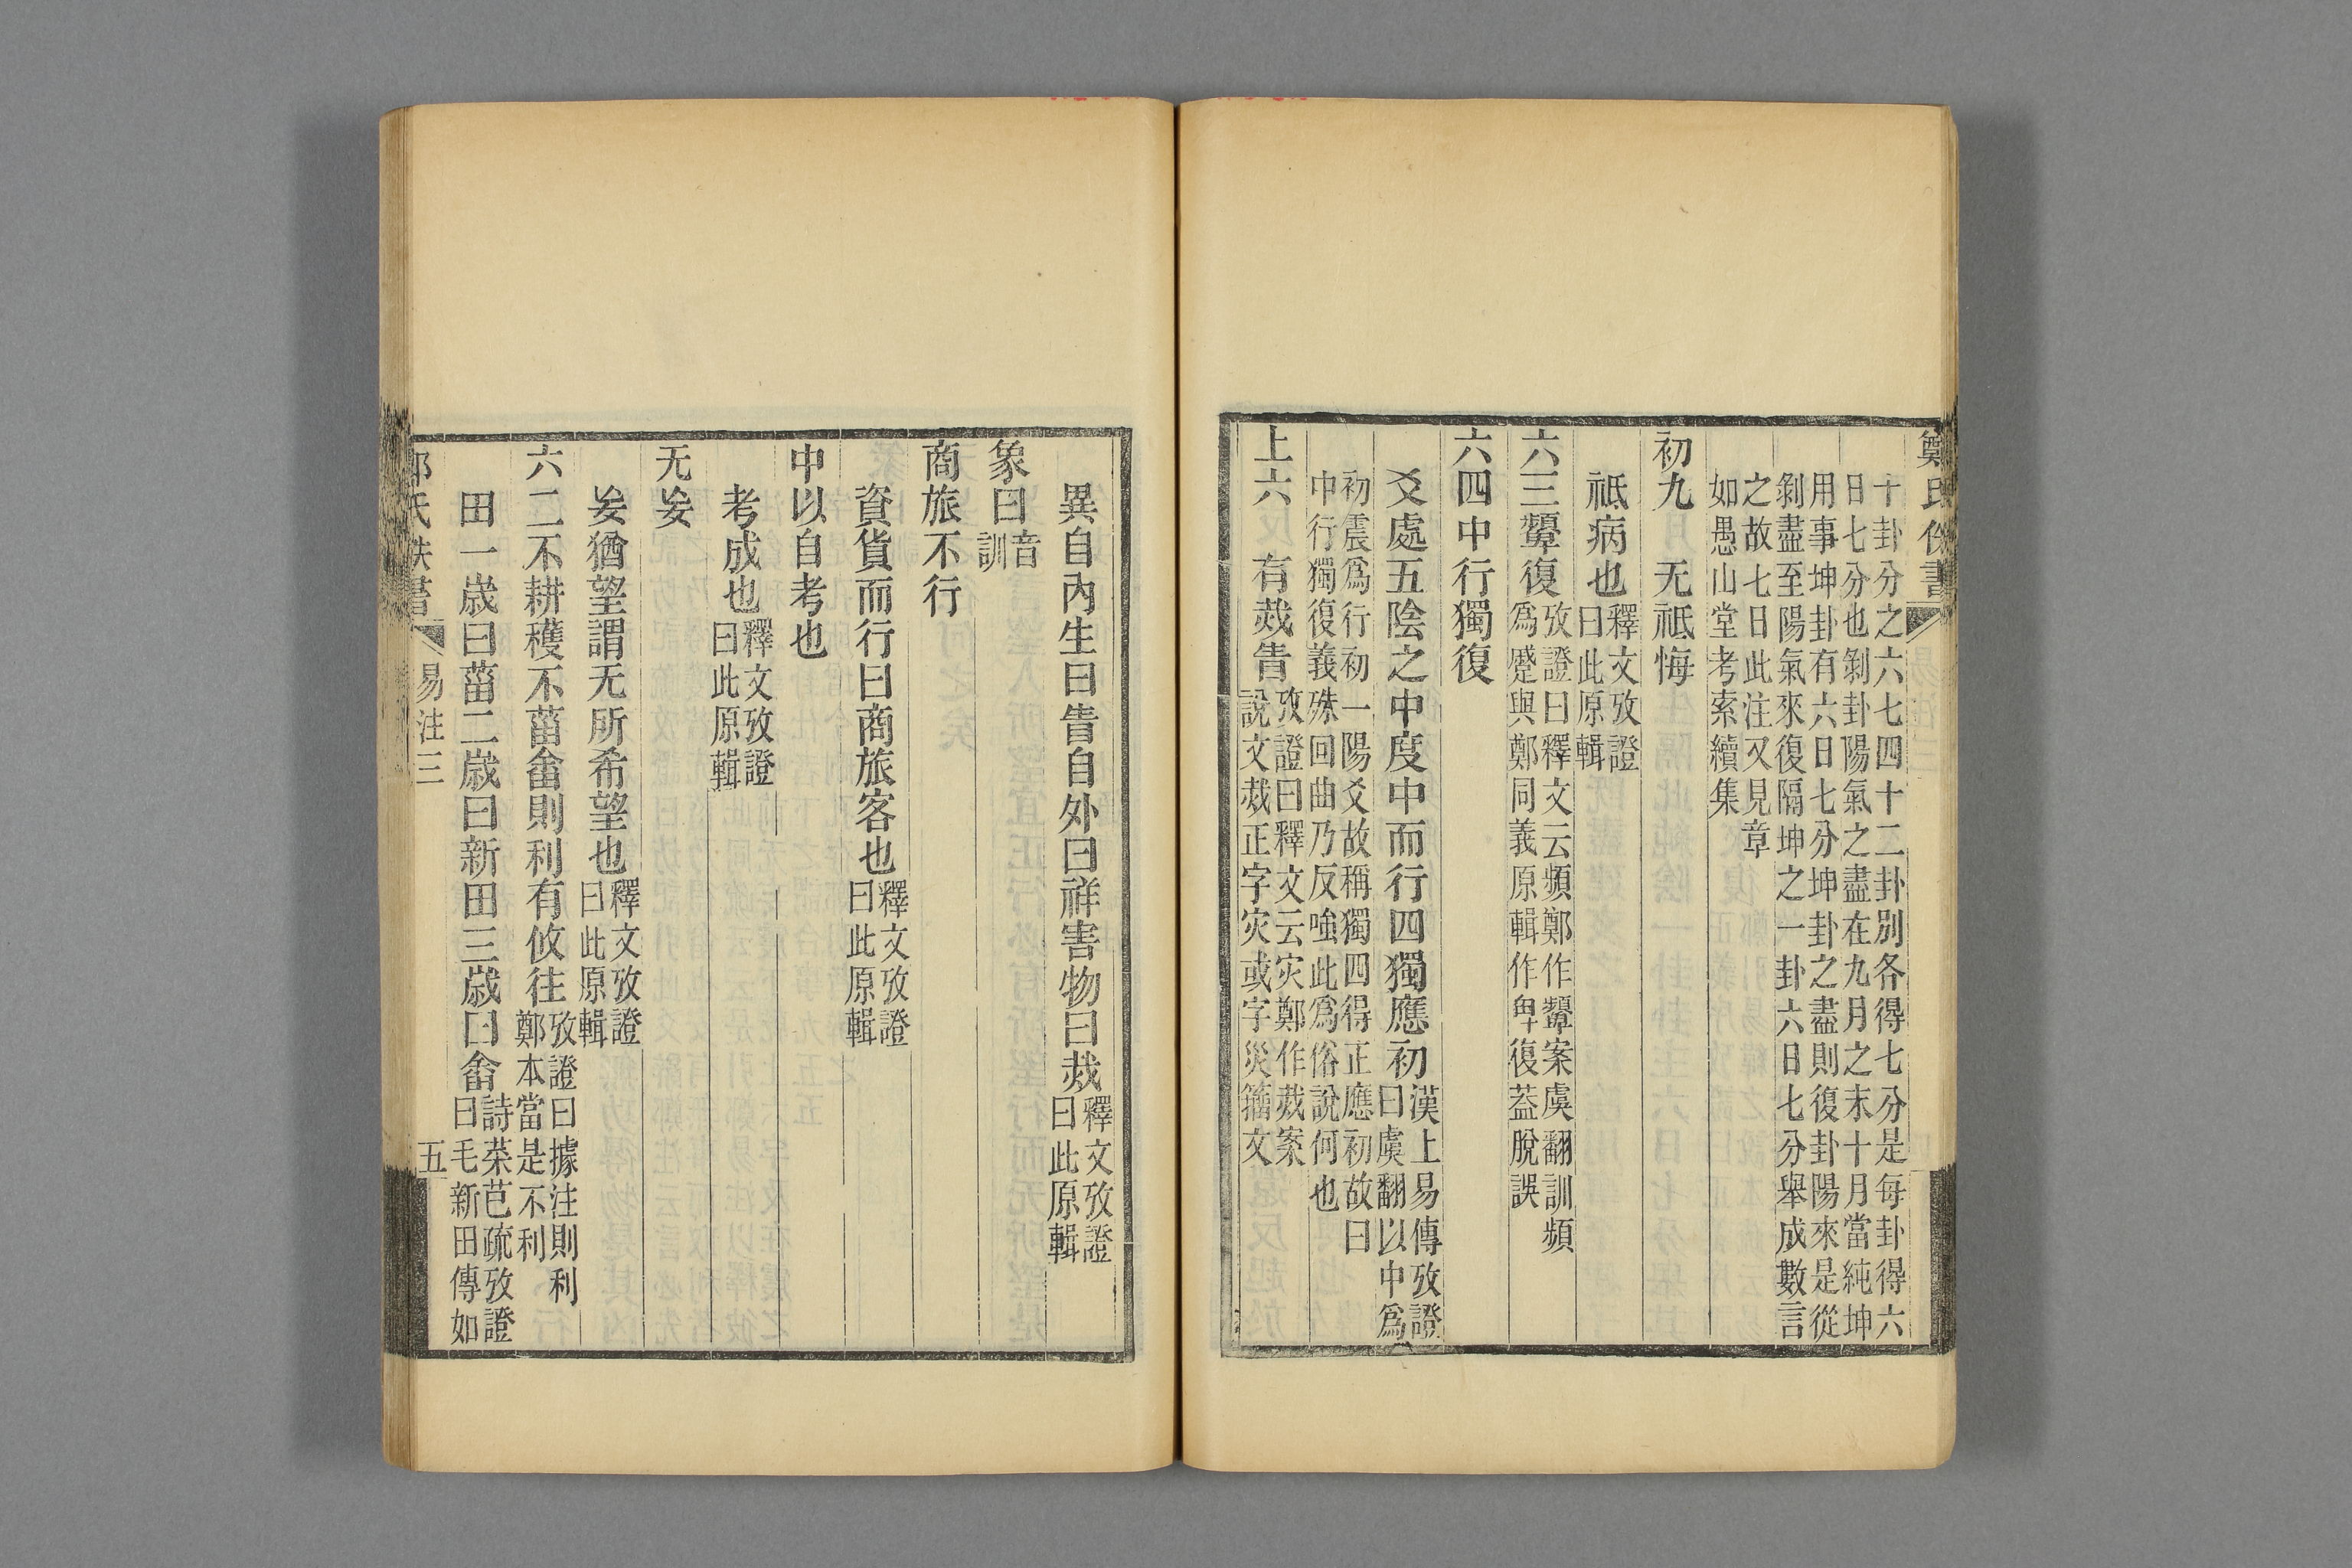 鄭氏佚書
十卦分之六七四十二卦別各得七分是每卦得六
日七分也剝卦陽氣之盡在九月之末十月當純坤
用事坤卦有六日七分坤卦之盡則復卦陽來是從
剝盡至陽氣來復隔坤之一卦六日七分舉成數言
之故七日此注又見章
如愚山堂考索續集
初九 无祗悔
祗病也
釋文攷證
曰此原輯
六三顰復
攷證曰釋文云頻鄭作顰案虞翻訓頻
爲蹙與鄭同義原輯作卑復葢脫誤
六四中行獨復
爻處五陰之中度中而行四獨應初
漢上易傳攷證
曰虞翻以中爲
初震爲行初一陽爻故稱獨四得正應初故曰
中行獨復義殊回曲乃反嗤此爲俗說何也
上六 有烖眚
攷證曰釋文云灾鄭作烖案
說文烖正字灾或字災籀文
異自內生曰眚自外曰祥害物曰烖
釋文攷證
曰此原輯
象曰
音
訓
商旅不行
資貨而行曰商旅客也
釋文攷證
曰此原輯
中以自考也
考成也
釋文攷證
曰此原輯
无妄
妄猶望謂无所希望也
釋文攷證
曰此原輯
六二不耕穫不菑畬則利有攸往
攷證曰據注則利
鄭本當是不利
田一歲曰菑二歲曰新田三歲曰畬
詩采芑疏攷證
曰毛新田傳如
氏佚書
易注三
五